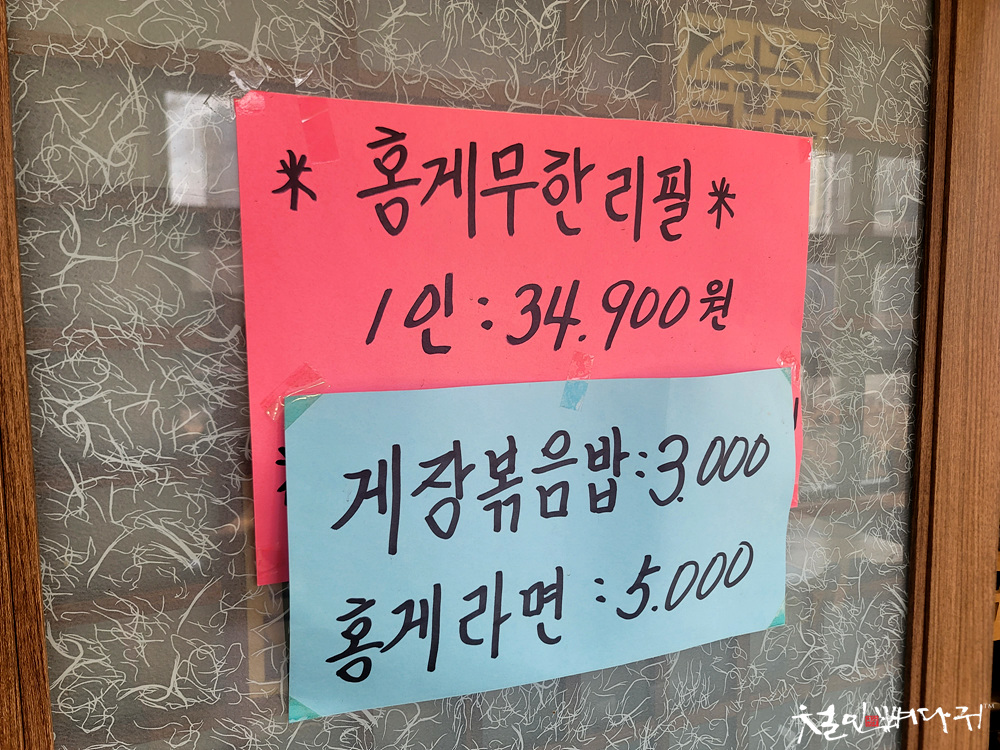 * 홍게무한리필 *
1인 : 34.900원
게장볶음밥 : 3.000
홍게라면 : 5.000
철인뼈다귀™